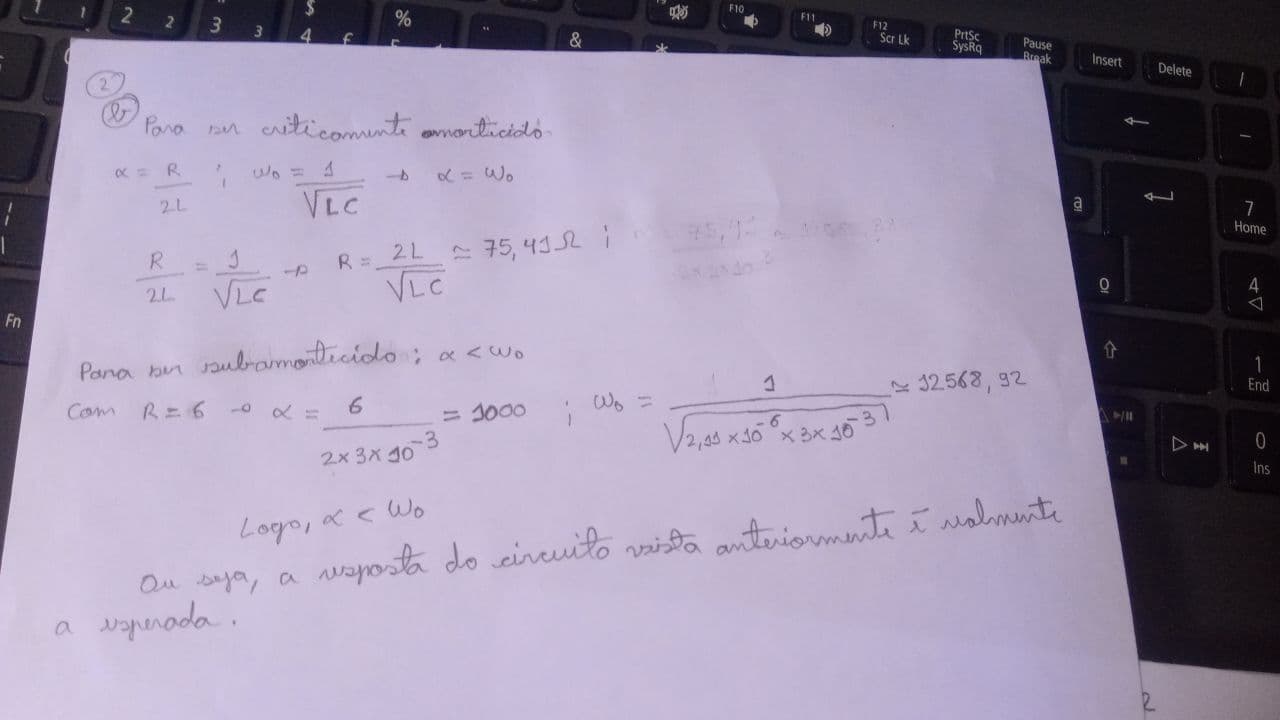 1 1 2 2 3 3 $ 4 € % 5 ¨ & * F10 F11 F12 Scr Lk PrtSc SysRq Pause Break Insert Delete /
②
b) Para ser criticamente amortecido.
α = R/2L ; ω₀ = 1/√LC → α = ω₀
R/2L = 1/√LC → R = 2L/√LC ≃ 75,41Ω ;
Para ser subamortecido; α < ω₀
Com R = 6 → α = 6/(2×3×10⁻³) = 1000 ; ω₀ = 1/√(2,11×10⁻⁶×3×10⁻³) ≃ 12568,92
Logo, α < ω₀
Ou seja, a resposta do circuito vista anteriormente é realmente
a esperada.
Fn
ª
º
7 Home
4
1 End
0 Ins
2